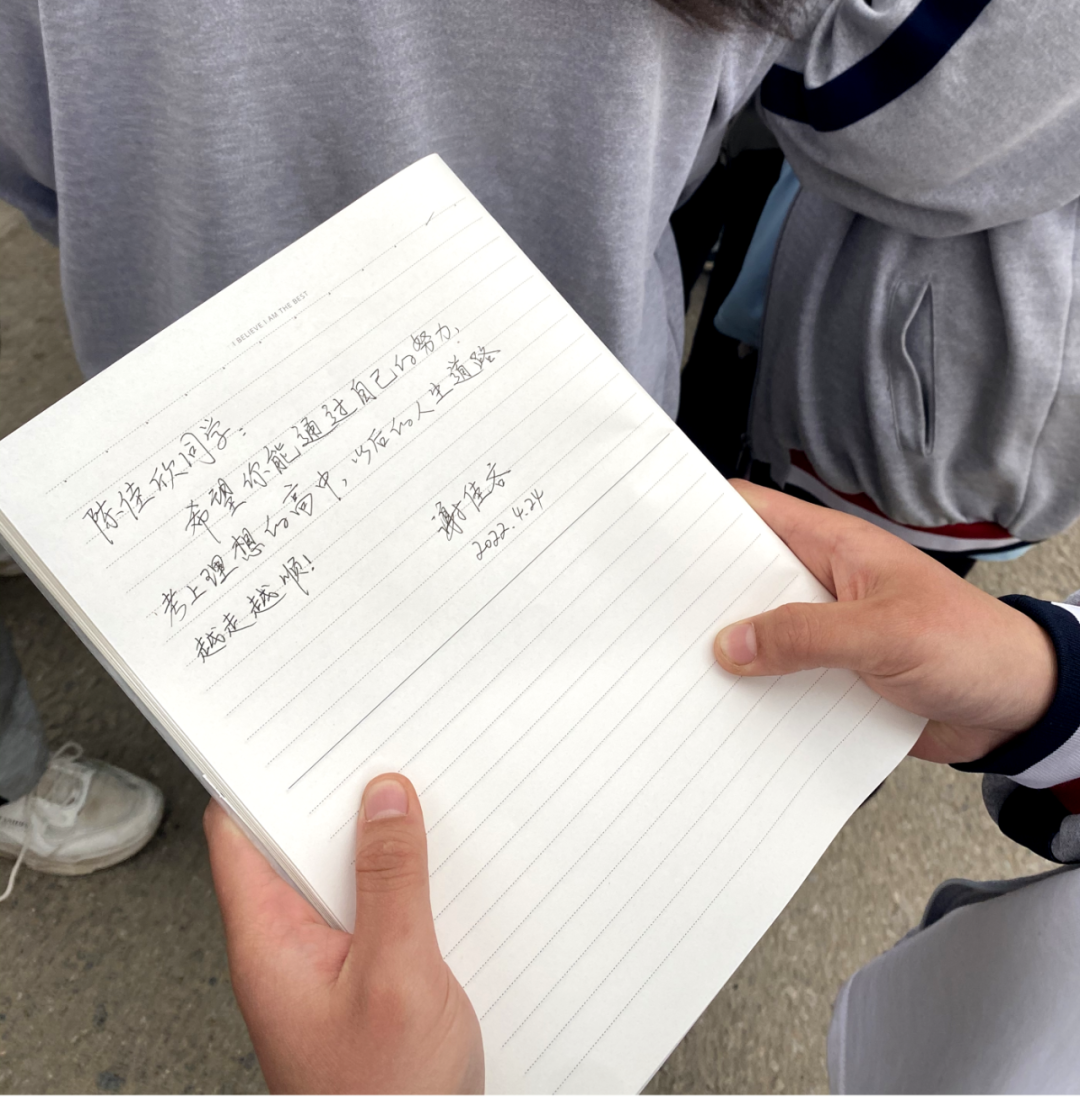 I BELIEVE I AM THE BEST
陈佳欣同学：
希望你能通过自己的努力，
考上理想的高中，以后的人生道路
越走越顺！
谢佳容
2022.4.24